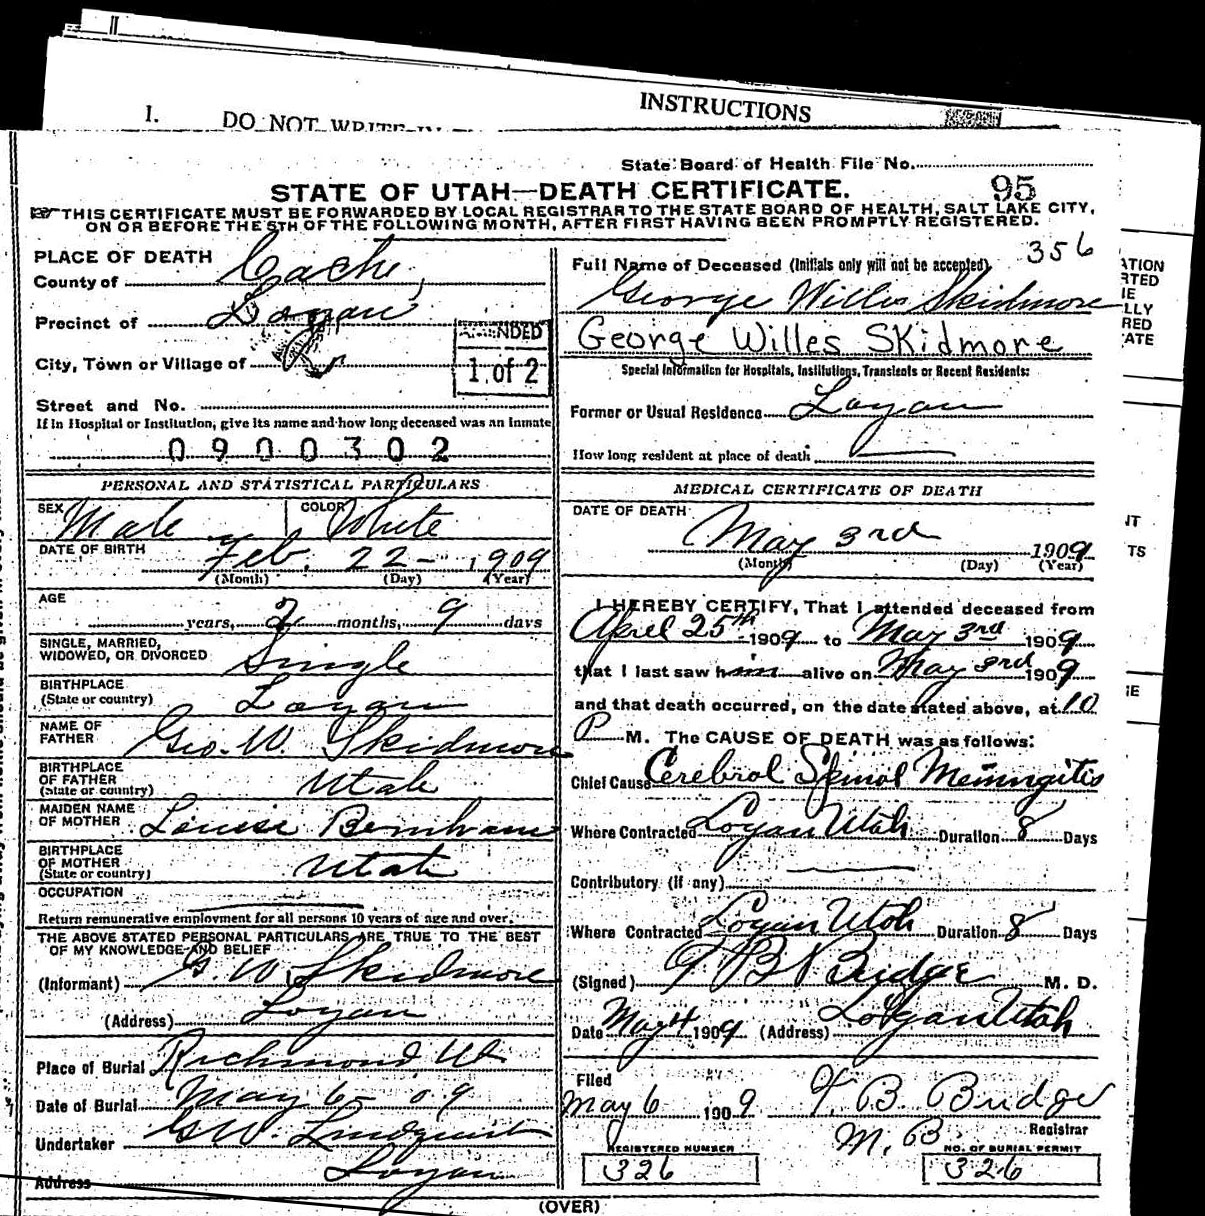 INSTRUCTIONS
I. DO NOT WRITE IN
State Board of Health File No.
STATE OF UTAH—DEATH CERTIFICATE.
95
THIS CERTIFICATE MUST BE FORWARDED BY LOCAL REGISTRAR TO THE STATE BOARD OF HEALTH, SALT LAKE CITY,
ON OR BEFORE THE 5TH OF THE FOLLOWING MONTH, AFTER FIRST HAVING BEEN PROMPTLY REGISTERED.
PLACE OF DEATH
County of Cache,
Precinct of Logan
City, Town or Village of
AMENDED
1 of 2
Street and No.
If in Hospital or Institution, give its name and how long deceased was an inmate
0900302
356
Full Name of Deceased (Initials only will not be accepted)
George Willis Skidmore
George Willes Skidmore
Special Information for Hospitals, Institutions, Transients or Recent Residents:
Former or Usual Residence Logan
How long resident at place of death
PERSONAL AND STATISTICAL PARTICULARS
SEX Male COLOR White
DATE OF BIRTH Feb. 22- 1909
(Month) (Day) (Year)
AGE
years, 2 months, 9 days
SINGLE, MARRIED,
WIDOWED, OR DIVORCED Single
BIRTHPLACE
(State or country) Logan
NAME OF
FATHER Geo. W. Skidmore
BIRTHPLACE
OF FATHER
(State or country) Utah
MAIDEN NAME
OF MOTHER Louise
BIRTHPLACE
OF MOTHER
(State or country) Utah
OCCUPATION
Return remunerative employment for all persons 10 years of age and over.
THE ABOVE STATED PERSONAL PARTICULARS ARE TRUE TO THE BEST
OF MY KNOWLEDGE AND BELIEF
(Informant) G. W. Skidmore
(Address) Logan
Place of Burial Richmond Ut
Date of Burial May 6- 09
Undertaker GW. Lindquist
Address Logan
MEDICAL CERTIFICATE OF DEATH
DATE OF DEATH
May 3rd 1909
(Month) (Day) (Year)
I HEREBY CERTIFY, That I attended deceased from
April 25th 1909 to May 3rd 1909
that I last saw him alive on May 3rd 1909
and that death occurred, on the date stated above, at 10
P M. The CAUSE OF DEATH was as follows:
Chief Cause Cerebrol Spinol Meningitis
Where Contracted Logan Utah Duration 8 Days
Contributory (if any)
Where Contracted Logan Utah Duration 8 Days
(Signed) Budge M. D.
Date May 4 1909 (Address) Logan Utah
Filed
May 6 1909 B. Budge
M. Registrar
REGISTERED NUMBER
326
NO. OF BURIAL PERMIT
326
(OVER)